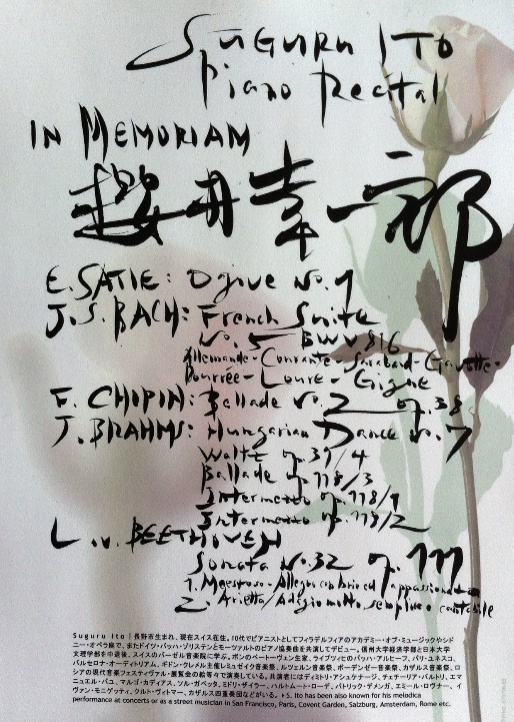 SUGURU ITO
Piano Recital
IN MEMORIAM
櫻井幸一郎
E. SATIE: Ogive No. 1
J.S. BACH: French Suite
No. 5 BWV 816
Allemande - Courante - Saraband - Gavotte -
Bourrée - Loure - Gigue
F. CHOPIN: Ballade No. 2 op. 38
J. BRAHMS: Hungarian Dance No. 7
Waltz op. 39/4
Ballade op. 118/3
Intermezzo op. 118/1
Intermezzo op. 118/2
L. v. BEETHOVEN
Sonata No. 32 op. 111
1. Maestoso - Allegro con brio ed appassionato
2. Arietta / Adagio molto semplice e cantabile
Suguru Ito | 長野市生まれ、現在スイス在住。10代でピアニストとしてフィラデルフィアのアカデミー・オブ・ミュージックやシド
ニー・オペラ座で、またドイツ・バッハ・ゾリステンとモーツァルトのピアノ協奏曲を共演してデビュー。信州大学経済学部と日本大学
文理学部を中退後、スイスのバーゼル音楽院に学ぶ。ボンのベートーヴェン生家、ライプツィヒのバッハ・アルヒーフ、パリ・ユネスコ、
バルセロナ・オーディトリアム、ギドン・クレメル主催レミュゼイク音楽祭、ルツェルン音楽祭、ボーデンゼー音楽祭、カザルス音楽祭、ロ
シアの現代音楽フェスティヴァル・展覧会の絵等々で演奏している。共演者にはディミトリ・アシュケナージ、チェチーリア・バルトリ、エマ
ニュエル・パユ、マルゴ・カディアス、ソル・ガベッタ、ミドリ・ザイラー、ハルトムート・ローデ、パトリック・デメンガ、エミール・ロヴナー、イ
ヴァン・モニゲッティ、クルト・ヴィトマー、カザルス四重奏団などがいる。 S. Ito has been also known for his melodica
performance at concerts or as a street musician in San Francisco, Paris, Covent Garden, Salzburg, Amsterdam, Rome etc.